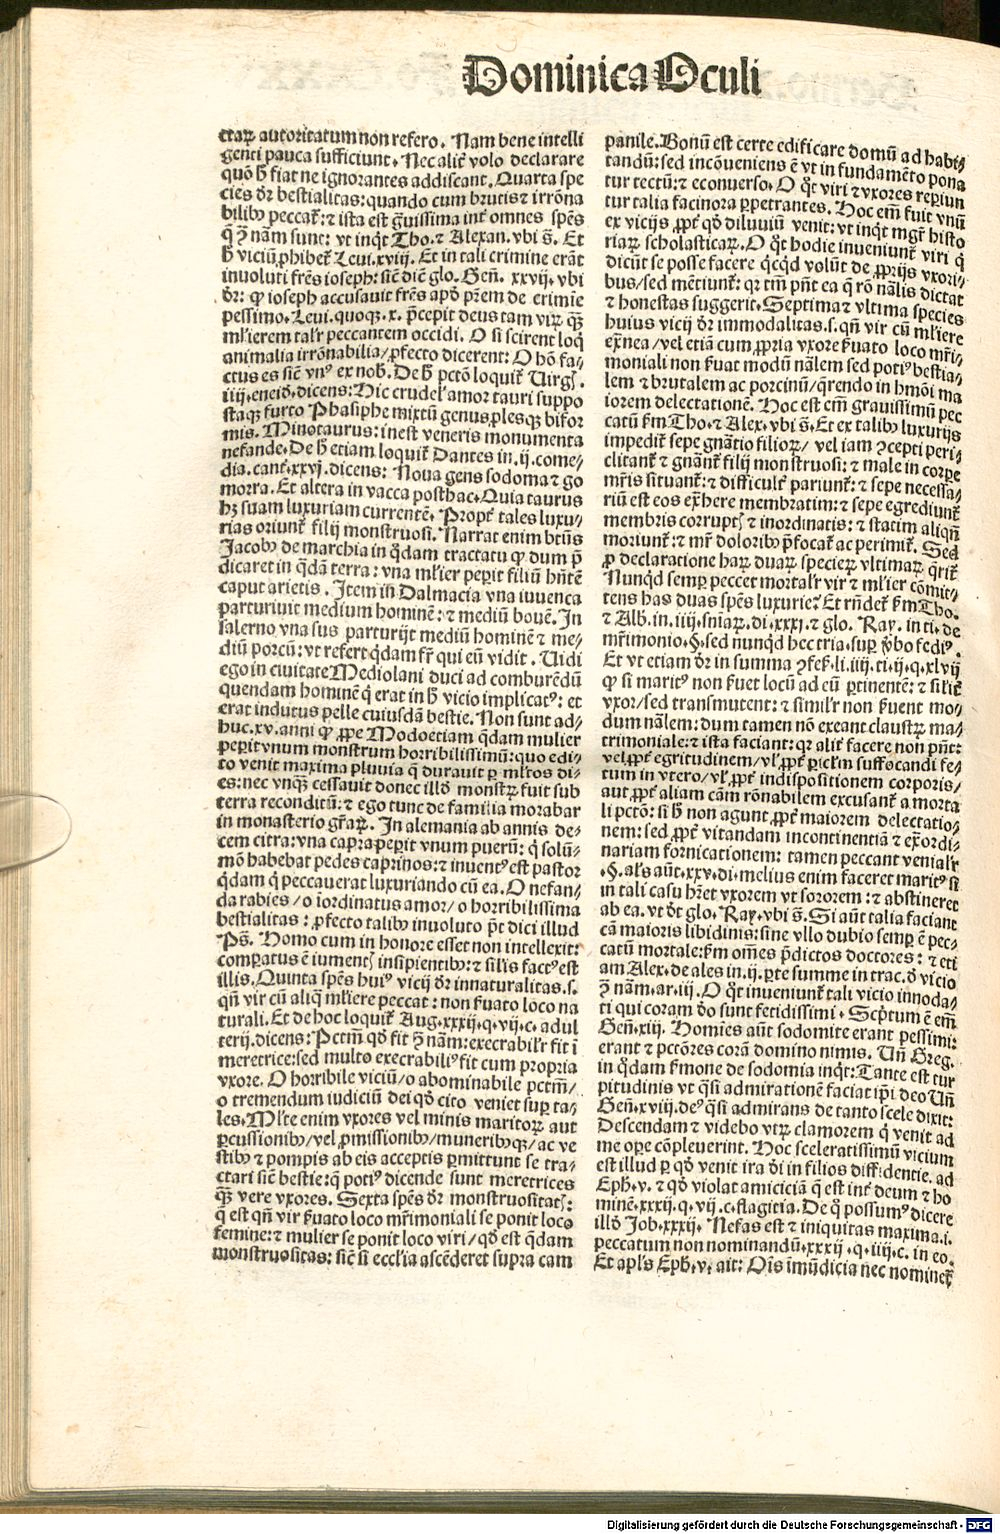 Dominica Oculi
ctaꝝ autoritatum non refero. Nam bene intelli
genti pauca sufficiunt. Nec alit̃ volo declarare
quõ h̃ fiat ne ignorantes addiscant. Quarta spe
cies dr̃ bestialitas: quando cum brutis ⁊ irrõna
bilibꝰ peccat̃: ⁊ ista est g̃uissima int̃ omnes spẽs
q̃ ꝯ̃ nãm sunt: vt inqt̃ Tho. ⁊ Alexan. vbi s̃. Et
h̃ viciũ ꝓhibet̃ Leui. xviij. Et in tali crimine erãt
inuoluti fr̃es ioseph: sic̃ dic̃ glo. Geñ. xxvij. vbi
dr̃: ꝙ ioseph accusauit fr̃es apd̃ pr̃em de crimie
pessimo. Leui. quoqꝫ. x. p̃cepit deus tam viꝝ qꝫ̃
ml̃ierem tal̃r peccantem occidi. O si scirent loq̃
animalia irrõnabilia/ ꝓfecto dicerent: O hõ fa/
ctus es sic̃ vnꝰ ex nob̃. De h̃ pctõ loquit̃ Uirgꝭ.
iiij. eneid̃. dicens: Hic crudel̃ amor tauri suppo
staqꝫ furto Phasiphe mixtũ genus ꝓlesqꝫ bifor
mis. Minotaurus: inest veneris monumenta
nefande. De h̃ etiam loquit̃ Dantes in. ij. come/
dia. cant̃. xxvj. dicens: Noua gens sodoma ⁊ go
morra. Et altera in vacca posthac. Quia taurus
hꝫ suam luxuriam currentẽ. Propt̃ tales luxu/
rias oriunt̃ filij monstruosi. Narrat enim bt̃us
Jacobꝰ de marchia in q̃dam tractatu ꝙ dum p̃
dicaret in q̃dã terra: vna ml̃ier peꝑit filiũ hñtẽ
caput arietis. Item in Dalmacia vna iuuenca
parturiuit medium hominẽ: ⁊ mediũ bouẽ. In
salerno vna sus parturijt mediũ hominẽ ⁊ me/
diũ porcũ: vt refert q̃dam fr̃ qui eũ vidit. Uidi
ego in ciuitate Mediolani duci ad comburẽdũ
quendam hominẽ q̃ erat in h̃ vicio implicatꝰ: et
erat indutus pelle cuiusdã bestie. Non sunt ad/
huc. xv. anni ꝙ ꝓpe Modoetiam q̃dam mulier
peꝑit vnum monstrum horribilissimũ: quo edi/
to venit maxima pluuia q̃ durauit ꝑ ml̃tos di/
es: nec vnqꝫ̃ cessauit donec illd̃ monstꝝ fuit sub
terra reconditũ: ⁊ ego tunc de familia morabar
in monasterio gr̃aꝝ. In alemania ab annis de/
cem citra: vna capra peꝑit vnum puerũ: q̃ solũ/
mõ habebat pedes caprinos: ⁊ inuentꝰ est pastor
q̃dam q̃ peccauerat luxuriando cũ ea. O nefan/
da rabies/ o iordinatus amor/ o horribilissima
bestialitas: ꝓfecto talibꝰ inuoluto p̃t dici illud
Ps̃. Homo cum in honore esset non intellexit:
comꝑatus ẽ iumentꝭ insipientibꝰ: ⁊ sil̃is factꝰ est
illis. Quinta spẽs huiꝰ vicij dr̃ innaturalitas. s.
qñ vir cũ aliq̃ ml̃iere peccat: non ẽuato loco na
turali. Et de hoc loquit̃ Aug. xxxij. q. vij. c. adul
terij. dicens: Pctm̃ qd̃ fit ꝯ̃ nãm: execrabil̃r fit ĩ
meretrice: sed multo execrabiliꝰ fit cum propria
vxore. O horribile viciũ/ o abominabile pctm̃/
o tremendum iudiciũ dei qd̃ cito veniet suꝑ ta/
les. Ml̃te enim vxores vel minis maritoꝝ aut
ꝑcussionibꝰ/ vel ꝓmissionibꝰ/ muneribꝰqꝫ/ ac ve
stibꝰ ⁊ pompis ab eis acceptis ꝑmittunt se tra/
ctari sic̃ bestie: q̃ potiꝰ dicende sunt meretrices
qꝫ̃ vere vxores. Sexta spẽs dr̃ monstruositatꝭ:
q̃ est qñ vir ẽuato loco mr̃imoniali se ponit loco
femine: ⁊ mulier se ponit loco viri/ qd̃ est q̃dam
monstruositas: sic̃ si eccl̃ia ascẽderet supra cam
panile. Bonũ est certe edificare domũ ad habi/
tandũ: sed incõueniens ẽ vt in fundamẽto pona
tur tectũ: ⁊ econuerso. O qt̃ viri ⁊ vxores reꝑiun
tur talia facinora ꝑpetrantes. Hoc em̃ fuit vnũ
ex vicijs ꝓpt̃ qd̃ diluuiũ venit: vt inqt̃ mgr̃ histo
riaꝝ scholasticaꝝ. O qt̃ hodie inueniunt̃ viri q̃
dicũt se posse facere qc̃qd̃ volũt de ꝓprijs vxori/
bus/ sed mẽtiunt̃: qꝛ tm̃ pñt ea q̃ rõ nãlis dictat
⁊ honestas suggerit. Septima ⁊ vltima species
huius vicij dr̃ immodalitas. s. qñ vir cũ ml̃iere
ex̃nea/ vel etiã cum ꝓpria vxore ẽuato loco mr̃i/
moniali non ẽuat modũ nãlem sed potiꝰ bestia/
lem ⁊ brutalem ac porcinũ/ q̃rendo in hm̃oi ma
iorem delectationẽ. Hoc est em̃ grauissimũ pec
catũ ẽm Tho. ⁊ Alex. vbi s̃. Et ex talibꝰ luxurijs
impedit̃ sepe gñatio filioꝝ/ vel iam ꝯcepti peri/
clitant̃ ⁊ gñant̃ filij monstruosi: ⁊ male in corꝑe
mr̃is situant̃: ⁊ difficult̃ pariunt̃: ⁊ sepe necessa/
riũ est eos ex̃here membratim: ⁊ sepe egrediunt̃
membris corruptꝭ ⁊ inordinatis: ⁊ statim aliqñ
moriunt̃: ⁊ mr̃ doloribꝰ p̃focat̃ ac perimit̃. Sed
ꝓ declaratione haꝝ duaꝝ specieꝝ vltimaꝝ q̃rit̃
Nunqd̃ semꝑ peccet mortal̃r vir ⁊ ml̃ier cõmit/
tens has duas spẽs luxurie? Et rñdet̃ ẽm Tho.
⁊ Alb. in. iiij. sniãꝝ. di. xxxj. ⁊ glo. Ray. in ti. de
mr̃imonio. §. sed nunqd̃ hec tria. suꝑ v̾bo fediꝰ.
Et vt etiam dr̃ in summa ꝯfef. li. iiij. ti. ij. q. xlvij
ꝙ si maritꝰ non ẽuet locũ ad eũ ꝑtinentẽ: ⁊ sil̃it̃
vxor/ sed transmutent: ⁊ simil̃r non ẽuent mo/
dum nãlem: dum tamen nõ exeant claustꝝ ma/
trimoniale: ⁊ ista faciant: qꝛ alit̃ facere non pñt:
vel ꝓpt̃ egritudinem/ vl̃ ꝓpt̃ pic̃l̃m suffocandi fe/
tum in vtero/ vl̃ ꝓpt̃ indispositionem corporis/
aut ꝓpt̃ aliam cãm rõnabilem excusant̃ a morta
li pctõ: si h̃ non agunt ꝓpt̃ maiorem delectatio/
nem: sed ꝓpt̃ vitandam incontinentiã ⁊ ex̃ordi/
nariam fornicationem: tamen peccant venial̃r
. §. al̃s aũt. xxv. di. melius enim faceret maritꝰ si
in tali casu hr̃et vxorem vt sororem: ⁊ abstineret
ab ea. vt dt̃ glo. Ray. vbi s̃. Si aũt talia faciant
cã maioris libidinis: sine vllo dubio semꝑ ẽ pec/
catũ mortale: ẽm om̃es p̃dictos doctores: ⁊ eti
am Alex. de ales in. ij. ꝑte summe in trac. d̃ vicio
ꝯ̃ nãm. ar. iij. O qt̃ inueniunt̃ tali vicio innoda/
ti qui coram dõ sunt fetidissimi. Scp̃tum ẽ em̃
Geñ. xiij. Homies aũt sodomite erant pessimi:
erant ⁊ pctõres corã domino nimis. Uñ Greg.
in q̃dam ẽmone de sodomia inqt̃: Tante est tur
pitudinis vt q̃si admirationẽ faciat ip̃i deo Uñ
Geñ. xviij. deꝰ q̃si admirans de tanto scele dixit:
Descendam ⁊ videbo vtꝝ clamorem q̃ venit ad
me oꝑe cõpleuerint. Hoc sceleratissimũ vicium
est illud ꝑ qd̃ venit ira dĩ in filios diffidentie. ad
Eph. v. ⁊ qd̃ violat amiciciã q̃ est int̃ deum ⁊ ho
minẽ. xxxij. q. vij. c. flagitia. De q̃ possumꝰ dicere
illd̃ Job. xxxij. Nefas est ⁊ iniquitas maxima. i.
peccatum non nominandũ. xxxij. q. iiij. c. in eo.
Et apl̃s Eph. v. ait: Oĩs ĩmũdicia nec nominet̃
Digitalisierung gefördert durch die Deutsche Forschungsgemeinschaft - DFG